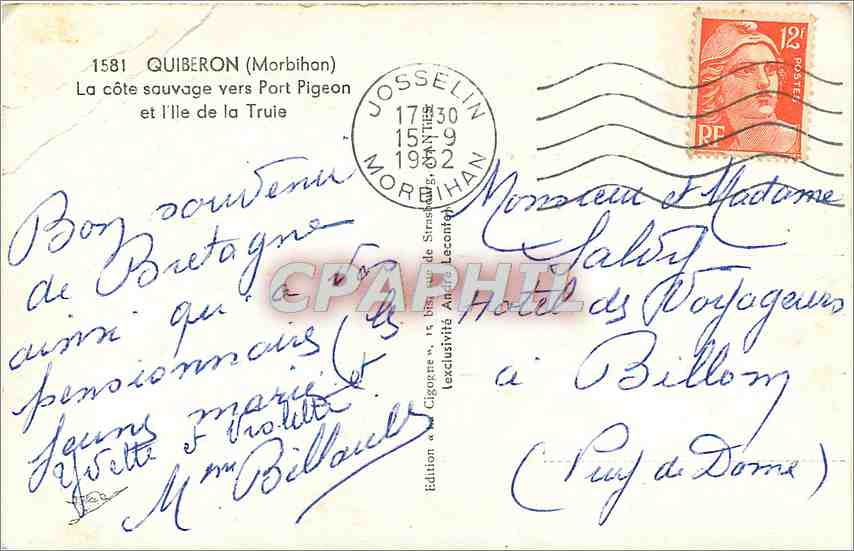 1581 QUIBERON (Morbihan)
La côte sauvage vers Port Pigeon
et l'Ile de la Truie
JOSSELIN
17 30
15 - 9
1952
MORBIHAN
12f
POSTES
RF
Bon souvenir
de Bretagne
ainsi qu'a vos
pensionnaires (les
jeune marié et
Yvette et Violette
Mme Billault
Edition « la Cigogne », 15 bis, rue de Strasbourg, NANTES
(exclusivité André Leconte)
Monsieur et Madame
Salvy
Hotel des Voyageurs
à Billom
(Puy de Dome)
CPAPHIL